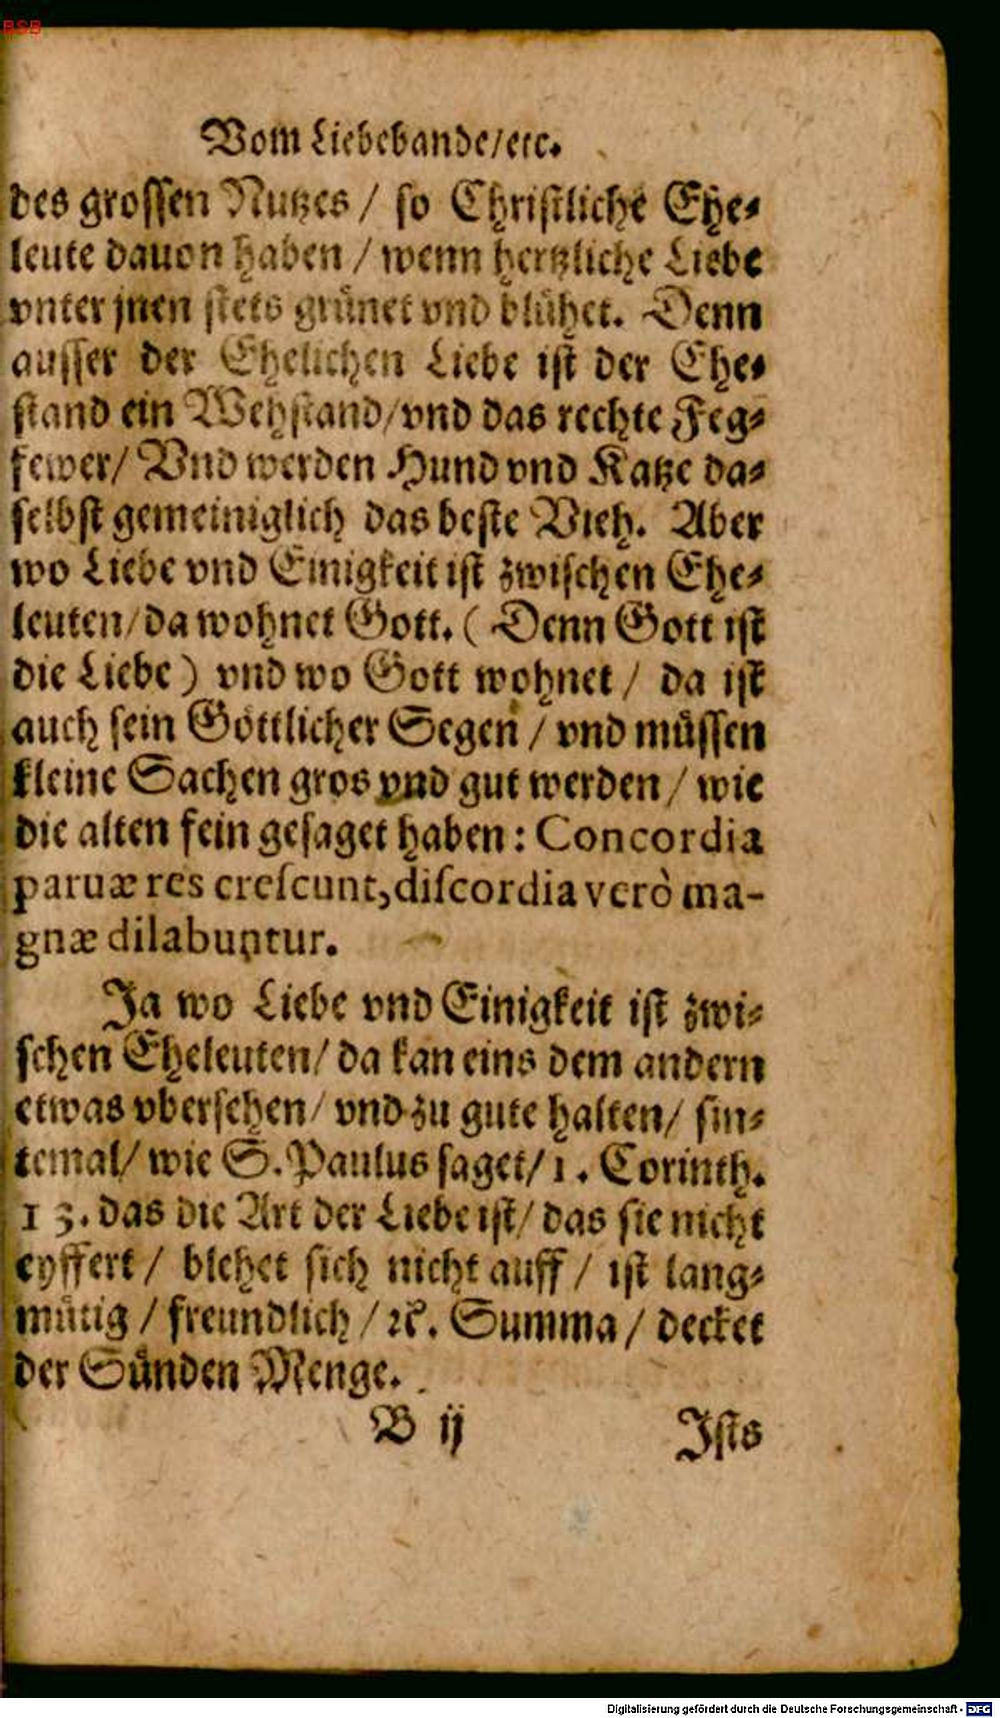 BSB
Vom Liebebande/etc.
des grossen Nutzes / so Christliche Ehe⸗
leute dauon haben / wenn hertzliche Liebe
vnter jnen stets grünet vnd blühet. Denn
ausser der Ehelichen Liebe ist der Ehe⸗
stand ein Wehstand/vnd das rechte Feg⸗
fewer/ Vnd werden Hund vnd Katze da⸗
selbst gemeiniglich das beste Vieh. Aber
wo Liebe vnd Einigkeit ist zwischen Ehe⸗
leuten/da wohnet Gott. ( Denn Gott ist
die Liebe ) vnd wo Gott wohnet / da ist
auch sein Göttlicher Segen / vnd müssen
kleine Sachen gros vnd gut werden / wie
die alten fein gesaget haben: Concordia
paruæ res crescunt, discordia verò ma-
gnæ dilabuntur.
Ja wo Liebe vnd Einigkeit ist zwi⸗
schen Eheleuten/ da kan eins dem andern
etwas vbersehen/ vnd zu gute halten/ sin⸗
temal/ wie S. Paulus saget/ 1. Corinth.
13. das die Art der Liebe ist/ das sie nicht
eyffert / blehet sich nicht auff / ist lang⸗
mütig / freundlich / ꝛc. Summa / decket
der Sünden Menge.
B ij Ists
Digitalisierung gefördert durch die Deutsche Forschungsgemeinschaft - DFG